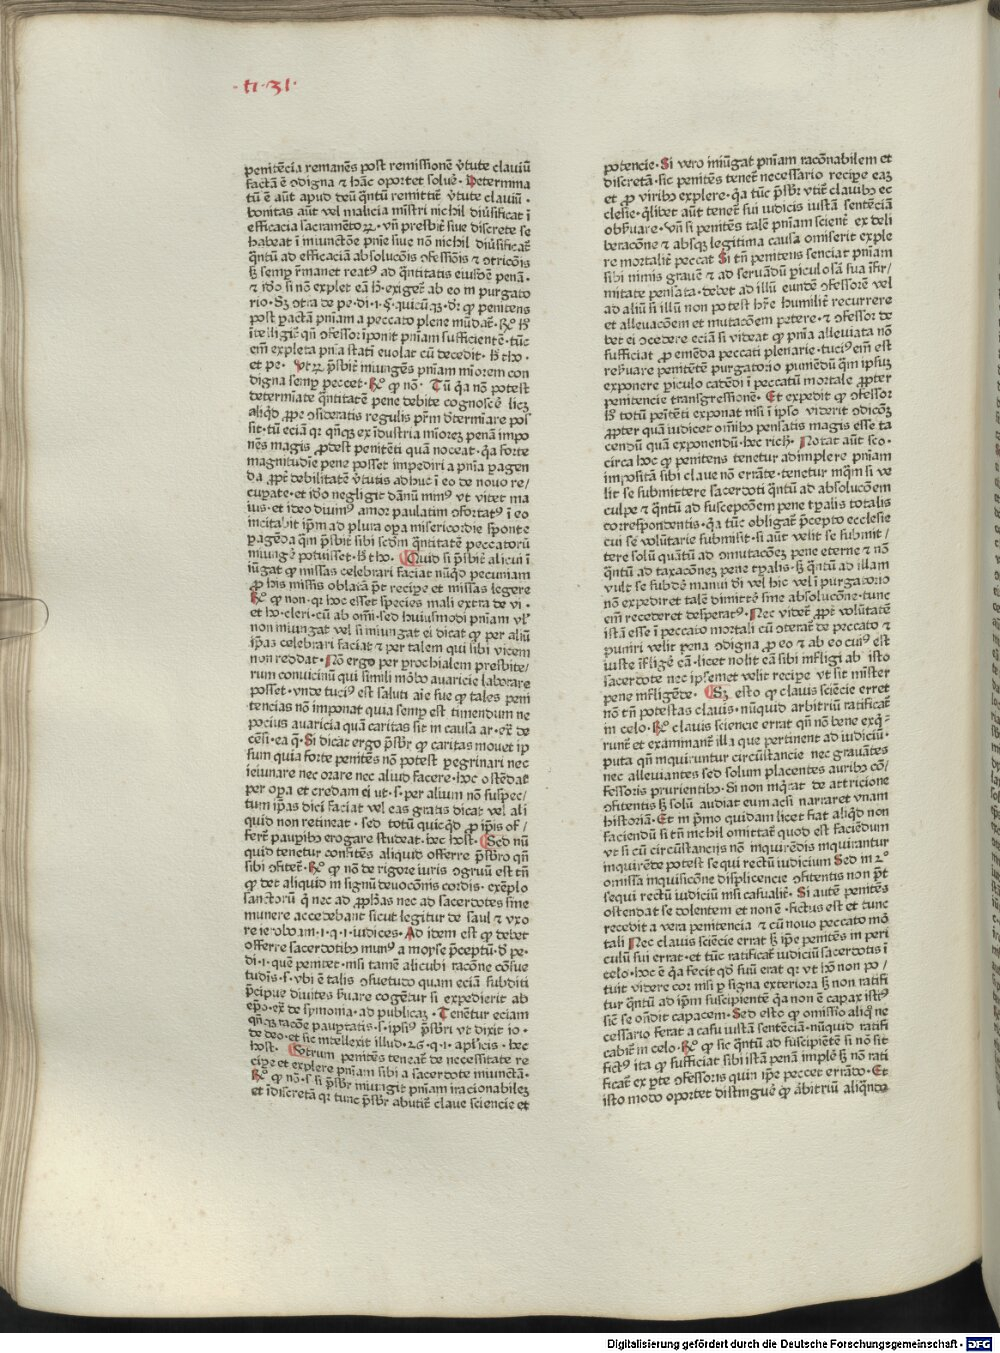 ·ti·31·
penitēcia remanēs post remissionē v̄tute clauiū
factā ē ꝯdigna ⁊ hāc oportet soluē· Determina
tū ē aūt apud deū q̄ntū remittit̄ v̄tute clauiū·
bonitas aūt vel malicia mīstri nichil diūsificat ī
efficacia sacramētoꝝ· vn̄ presbit̄ siue discrete se
habeat ī iniunctōe pn̄ie siue nō nichil diūsificat̄
q̄ntū ad efficaciā absolucōis ꝯfessiōis ⁊ ꝯtricōis
ꝫ semp̄ r̄manet reatꝰ ad q̄ntitatis eiusdē penā·
⁊ iđo si nō explet eā h̄· exiget̄ ab eo in purgato
rio· Sꝫ ꝯtra de pe· di· i· §· quicūqꝫ· dr̄ ꝙ penitens
post p̱actā pn̄iam a peccato plene mūdat̄· Ro̅ h̄
ītelligit̄ qn̄ ꝯfessor īponit pn̄iam sufficientē· tūc
em̄ expleta pn̄ia statī euolat cū decedit· h̄ tho·
et pe· Vtꝝ p̄sbit̄ iniungēs pn̄iam miōrem con
digna semp̄ peccet· Ro̅ ꝙ nō· Tū q̄a nō potest
determīate q̄ntitatē pene debite cognoscē licꝫ
aliq̄d ꝓpe ꝯsideratis regulis p̄rm̄ dt̄ermīare pos
sit· tū eciā qr̄ qn̄qꝫ ex īdustria mīoreꝫ penā impo
nēs magis ꝓdest penitēti quā noceat· q̄a forte
magnitudīe pene posset impediri a pn̄ia p̱agen
da ꝓpt̄ debilitatē v̄tutis adhuc ī eo de nouo re/
cup̱ate· et iđo negligit dānū minꝰ vt vitet ma
ius· et ideo diuinꝰ amor paulatim ꝯfortatꝰ ī eo
incitabit ip̄m ad plura op̱a misericordie sponte
p̱agēda q̄m p̄sbit̄ sibi scđm q̄ntitatē peccatorū
iniungē potuisset· h̄ tho· Quid si p̄sbit̄ alicui ī
iūgat ꝙ missas celebrari faciat nūq̄d pecuniam
ꝓ his missis oblatā p̄t recip̱e et missas legere
Ro̅ ꝙ non· qr̄ hoc esset species mali extra de vi·
et ho· cleri· cū ab om̄i· sed huiusmodi pn̄iam vl̄
non iniungat vel si iniungat ei dicat ꝙ per aliū
ip̄as celebrari faciat ⁊ per talem qui sibi vicem
non reddat· Nō ergo per p̱rochialem presbite/
rum conuicinū qui simili mōbo auaricie laborare
posset· vnde tuciꝰ est saluti aīe sue ꝙ tales peni
tencias nō imponat quia semp̄ est timendum ne
pocius auaricia quā caritas sit in causa ar· ex̄ de
cēsi· ea q̄· Si dicat ergo p̄sbr̄ ꝙ caritas mouet ip
sum quia forte penitēs nō potest p̱egrinari nec
ieiunare nec orare nec aliud facere· hoc ostēdat
per op̱a et credam ei ut· s· per alium nō suspec/
tum ip̄as dici faciat vel eas gratis dicat vel ali
quid non retineat· sed totū quicq̄d ꝓ ip̄is of/
fert̄ paup̱ibꝰ erogare studeat· hec host· Sed nū
quid tenetur confitēs aliquid offerre p̄sbr̄o qn̄
sibi ꝯfitet̄· Ro̅ ꝙ nō de rigore iuris ꝯgruū est tn̄
ꝙ det aliquid in signū deuocōnis cordis· exēplo
sanctorū q̄ nec ad ꝓphas nec ad sacerdotes sine
munere accedebant sicut legitur de saul ⁊ vxo
re ieroboam· i· q· i· iudices· Ad idem est ꝙ debet
offerre sacerdotibꝰ munꝰ a moyse p̄ceptū· đ pe·
di· i· que penitet· nisi tamē alicubi racōne cōsue
tudīs· s· vbi ē talis ꝯsuetudo quam eciā subditi
p̄cipue diuites s̄uare cogētur si expedierit ab
ep̄o· ex̄ de symonia· ad publicaꝫ· Tenētur eciam
qn̄qꝫ racōe paup̱tatis· s· ipsiꝰ p̄sbri vt dixit io·
de deo· et sic intellexit illud· 26· q· i· ap̄licis· hec
host· Vtrum penitēs teneat̄ de necessitate re
cip̱e et explere pn̄iam sibi a sacerdote iniunctā·
Ro̅ ꝙ nō· s· si p̄sbr̄ iniungit pn̄iam iracionabileꝫ
et īdiscretā qr̄ tunc p̄sbr̄ abutit̄ claue sciencie et
potencie· Si vero iniūgat pn̄iam racōnabilem et
discretā· sic penitēs tenet̄ necessario recip̱e eaꝫ
et ꝓ viribꝰ explere· q̄a tūc p̄sbr̄ vtit̄ clauibꝰ ec
clesie· q̄libet aūt tenet̄ sui iudicis iustā sentēciā
obs̄uare· vn̄ si penitēs talē pn̄iam scient̄ ex deli
beracōne ⁊ absqꝫ legitima causa omiserit exple
re mortalit̄ peccat Si tn̄ penitens senciat pn̄iam
sibi nimis grauē ⁊ ad seruādū p̱iculosā sua īfir/
mitate pensata· debet ad illū eundē ꝯfessorē vel
ad aliū si illū non potest hr̄e humilit̄ recurrere
et alleuacōem et mutacōem petere· ⁊ ꝯfessor de
bet ei ꝯcedere eciā si videat ꝙ pn̄ia alleuiata nō
sufficiat ꝓ emēda peccati plenarie· tuciꝰ em̄ est
res̄uare penitētē purgatorio puniēdū q̄m ipsuꝫ
exponere p̱iculo cadēdi ī peccatū mortale ꝓpter
penitencie transgressionē· Et expedit ꝙ ꝯfessor
h̄ totū penitēti exponat nisi ī ipso viderit ꝯdicōꝫ
ꝓpter quā iudicet om̄ibꝰ pensatis magis esse ta
cendū quā exponendū· hec rich̄· Notat aūt sco·
circa hoc ꝙ penitens tenetur adimplere pn̄iam
impositā sibi claue nō errāte· tenetur inq̄m si ve
lit se submittere sacerdoti q̄ntū ad absolucōem
culpe ⁊ q̄ntū ad suscepcōem pene tp̱alis totalis
correspondentis· q̄a tūc obligat̄ p̄cepto ecclesie
cui se volūtarie submisit· si aūt velit se submit/
tere solū quātū ad ꝯmutacōeꝫ pene eterne ⁊ nō
q̄ntū ad taxacōneꝫ pene tp̱alis· ꝫ q̄ntū ad illam
vult se subdē manui di vel hic vel ī purgatorio
nō expediret talē dimittē sine absolucōne· tunc
em̄ recederet desperatꝰ· Nec videt̄ ꝓpt̄ volūtatē
istā esse ī peccato mortali cū ꝯterat̄ de peccato ⁊
puniri velit pena ꝯdigna ꝓ eo ⁊ ab eo cuiꝰ est
iuste īfligē eā· licet nolit eā sibi infligi ab isto
sacerdote nec ipsemet velit recip̱e vt sit mīster
pene infligēde· Sꝫ esto ꝙ clauis sciēcie erret
non tn̄ potestas clauis· nūquid arbitriū ratificat̄
in celo· Ro̅ clauis sciencie errat qn̄ nō bene exq̄-
runt̄ et examinant̄ illa que pertinent ad iudiciū·
puta qn̄ inquiruntur circūstancie nec grauātes
nec alleuiantes sed solum placentes auribꝰ cō/
fessoris prurientibꝰ· Si non inq̄rat de attricione
ꝯfitentis ꝫ solū audiat eum acsi narraret vnam
historiā· Et in p̄mo quidam licet fiat aliq̄d non
faciendū si tn̄ nichil omittat̄ quod est faciēdum
vt si cū circūstancijs nō inquirēdis inquirantur
inquirēde potest sequi rectū iudicium Sed in 2o
omissa inquisicōne displicencie ꝯfitentis non p̄t
sequi rectū iudiciū nisi casualit̄· Si autē penitēs
ostendat se dolentem et non ē· fictus est et tunc
recedit a vera penitencia ⁊ cū nouo peccato mō
tali Nec clauis sciēcie errat ꝫ ip̄e penitēs in peri
culū sui errat· et tūc ratificat̄ iudiciū sacerdotis ī
celo· hoc ē q̄a fecit qđ suū erat qr̄ vt hō non po/
tuit videre cor nisi p̱ signa exteriora ꝫ non ratifi
tur q̄ntū ad ip̄m suscipientē q̄a non ē capax istiꝰ
sic̄ se ondit capacem· Sed esto ꝙ omissio aliq̄ ne
cessario ferat a casu iustā sentēciā· nūquid ratifi
cabit̄ in celo· Ro̅ ꝙ sic q̄ntū ad suscipiētē si nō sit
fictꝰ ita ꝙ sufficiat sibi istā penā implē ꝫ nō rati
ficat̄ ex p̱te ꝯfessoris quin ip̄e peccet errādo· Et
isto modo oportet distinguē ꝙ ābitriū aliq̄ndo
Digitalisierung gefördert durch die Deutsche Forschungsgemeinschaft · DFG